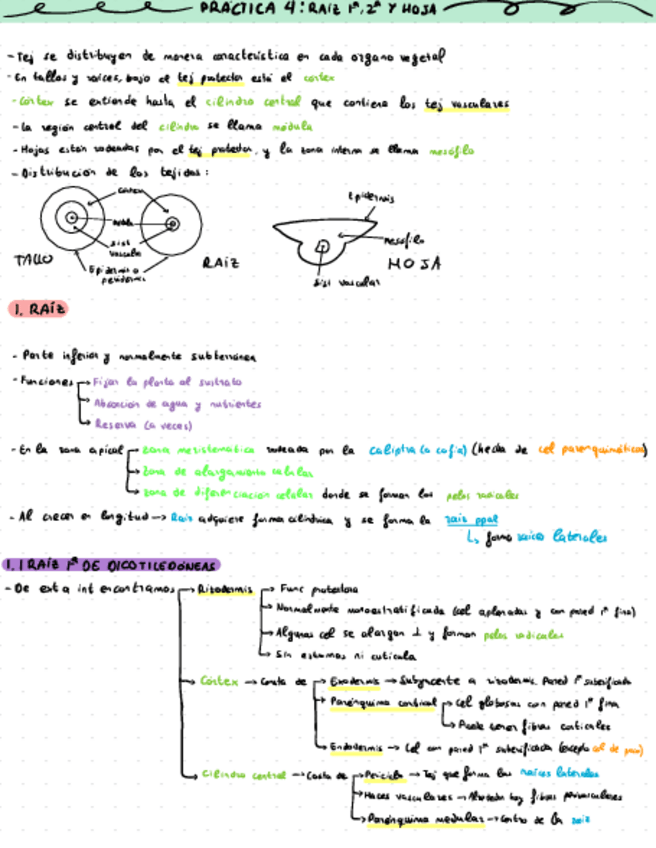 PRÁCTICA 4: RAIZ 1ª, 2ª Y HOJA
- Tej se distribuyen de manera característica en cada organo vegetal
- En tallos y raíces, bajo el tej protector está el cortex
- Cortex se extiende hasta el cilindro central que contiene los tej vasculares
- La region central del cilindro se llama médula
- Hojas están rodeadas por el tej protector, y la zona interna se llama mesófilo
- Distribución de los tejidos:
cortex
médula
sist vascular
Epidermis o peridermis
TALLO
RAÍZ
Epidermis
mesófilo
HOJA
sist vascular
1. RAÍZ
- Parte inferior y normalmente subterránea
- Funciones → Fijar la planta al sustrato
→ Absorción de agua y nutrientes
→ Reserva (a veces)
- En la zona apical → zona meristemática rodeada por la caliptra (o cofia) (hecha de cel parenquimáticas)
→ zona de alargamiento celular
→ zona de diferenciación celular donde se forman los pelos radicales
- Al crecer en longitud → Raiz adquiere forma cilíndrica y se forma la raiz ppal
↳ forma raices laterales
1.1 RAÍZ 1ª DE DICOTILEDÓNEAS
- De ext a int encontramos → Rizodermis → Func protectora
→ Normalmente monoestratificada (cel aplanadas y con pared 1ª fina)
→ Algunas cel se alargan ⊥ y forman pelos radicales
→ Sin estomas ni cutícula
→ Córtex → Consta de → Exodermis → Subyacente a rizodermis. Pared 1ª suberificada
→ Parénquima cortical → cel globosas con pared 1ª fina
→ Puede tener fibras corticales
→ Endodermis → Cel con pared 1ª suberificada (excepto cel de paso)
→ Cilindro central → Costa de → Periciclo → Tej que forma las raíces laterales
→ Haces vasculares → Alrededor hay fibras perivasculares
→ Parénquima medular → Centro de la raiz